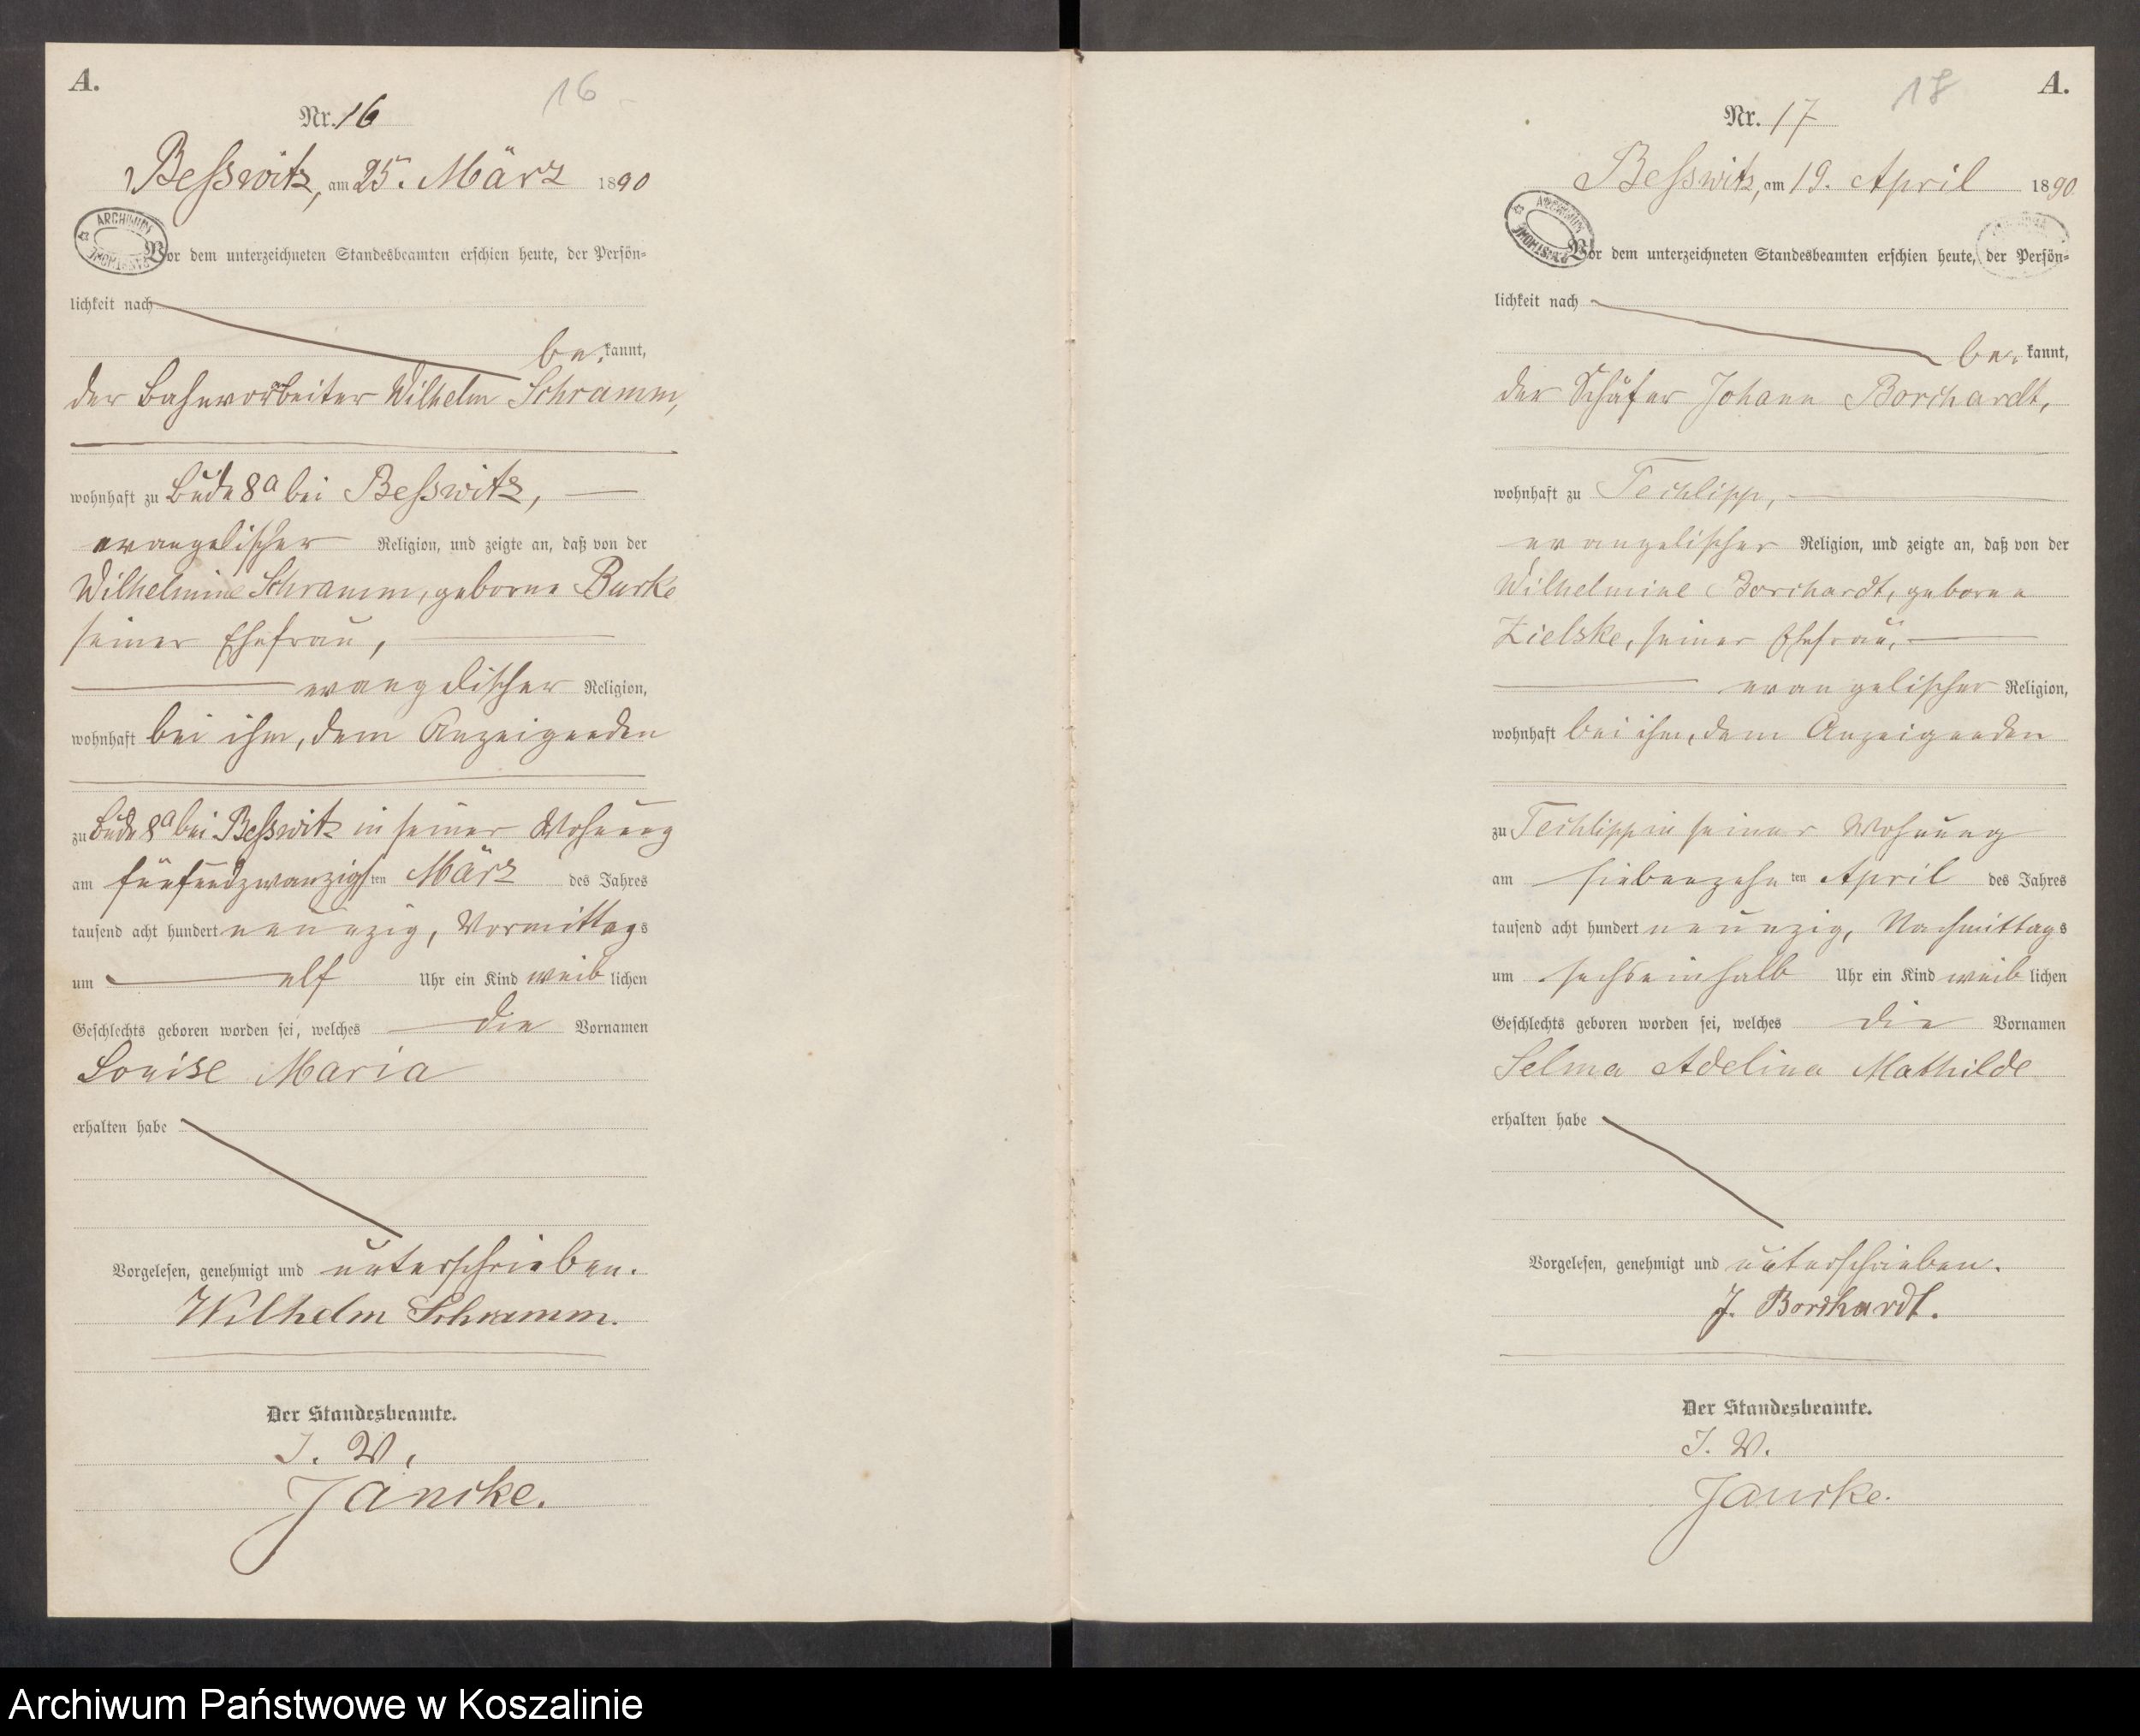 A.
16
Nr. 16
Beßwitz, am 25. März 1890
ARCHIWUM
Vor dem unterzeichneten Standesbeamten erschien heute, der Persön=
lichkeit nach
be kannt,
der Bahnvorarbeiter Wilhelm Schramm,
wohnhaft zu Bude 8a bei Beßwitz,
evangelischer Religion, und zeigte an, daß von der
Wilhelmine Schramm, geborne Burke
seiner Ehefrau,
evangelischer Religion,
wohnhaft bei ihm, dem Anzeigenden
zu Bude 8a bei Beßwitz in seiner Wohnung
am fünfundzwanzigsten März des Jahres
tausend acht hundert neunzig, Vormittags
um elf Uhr ein Kind weiblichen
Geschlechts geboren worden sei, welches die Vornamen
Louise Maria
erhalten habe
Vorgelesen, genehmigt und unterschrieben.
Wilhelm Schramm.
Der Standesbeamte.
J. V.
Jancke.
17
A.
Nr. 17
Beßwitz, am 19. April 1890.
ARCHIWUM
Vor dem unterzeichneten Standesbeamten erschien heute, der Persön=
lichkeit nach
be kannt,
der Schäfer Johann Borchardt,
wohnhaft zu Techlipp,
evangelischer Religion, und zeigte an, daß von der
Wilhelmine Borchardt, geborne
Zielske, seiner Ehefrau,
evangelischer Religion,
wohnhaft bei ihm, dem Anzeigenden
zu Techlipp in seiner Wohnung
am siebenzehnten April des Jahres
tausend acht hundert neunzig, Nachmittags
um sechseinhalb Uhr ein Kind weiblichen
Geschlechts geboren worden sei, welches die Vornamen
Selma Adelina Mathilde
erhalten habe
Vorgelesen, genehmigt und unterschrieben.
J. Borchardt.
Der Standesbeamte.
J. V.
Jancke.
Archiwum Państwowe w Koszalinie